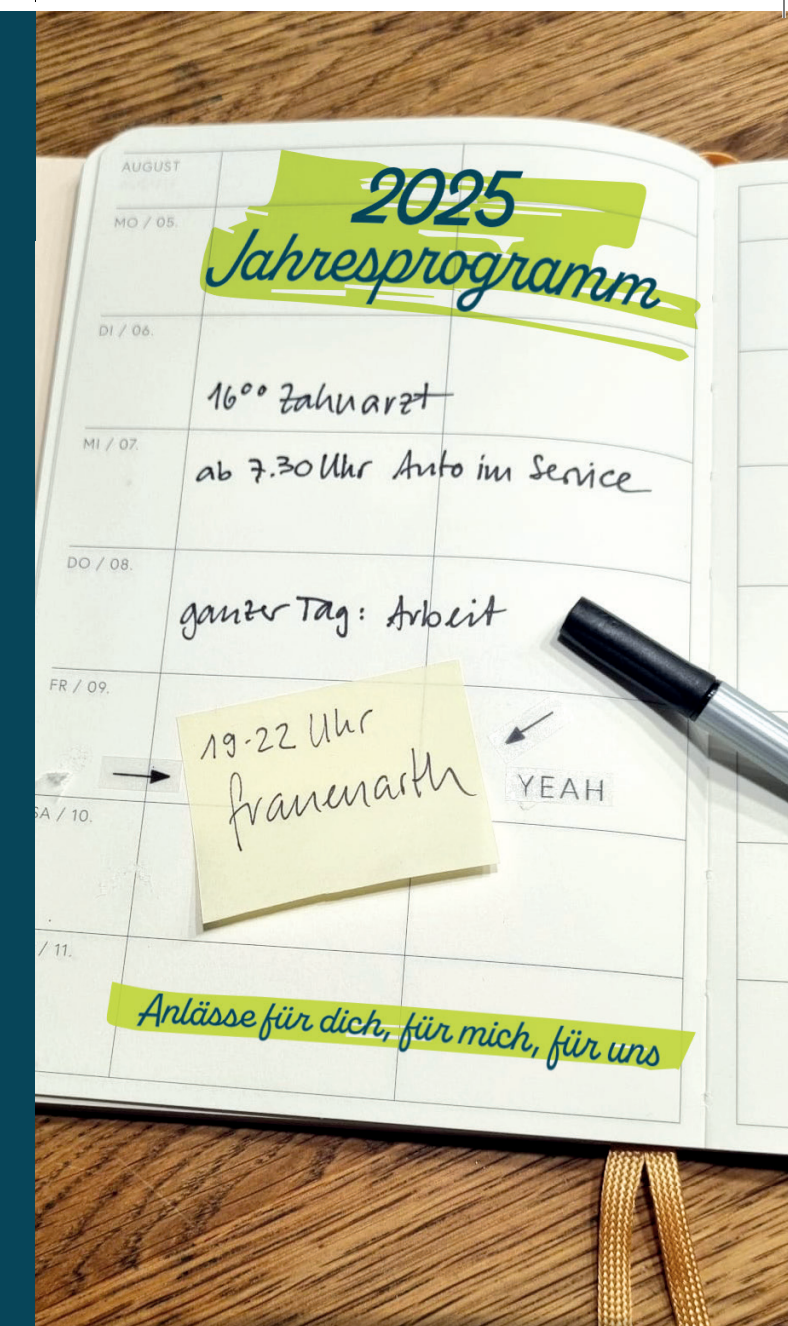 2025
Jahresprogramm
AUGUST
MO / 05.
DI / 06.
16⁰⁰ Zahnarzt
MI / 07.
ab 7.30 Uhr Auto im Service
DO / 08.
ganzer Tag: Arbeit
FR / 09.
19-22 Uhr
frauenarth
YEAH
SA / 10.
/ 11.
Anlässe für dich, für mich, für uns